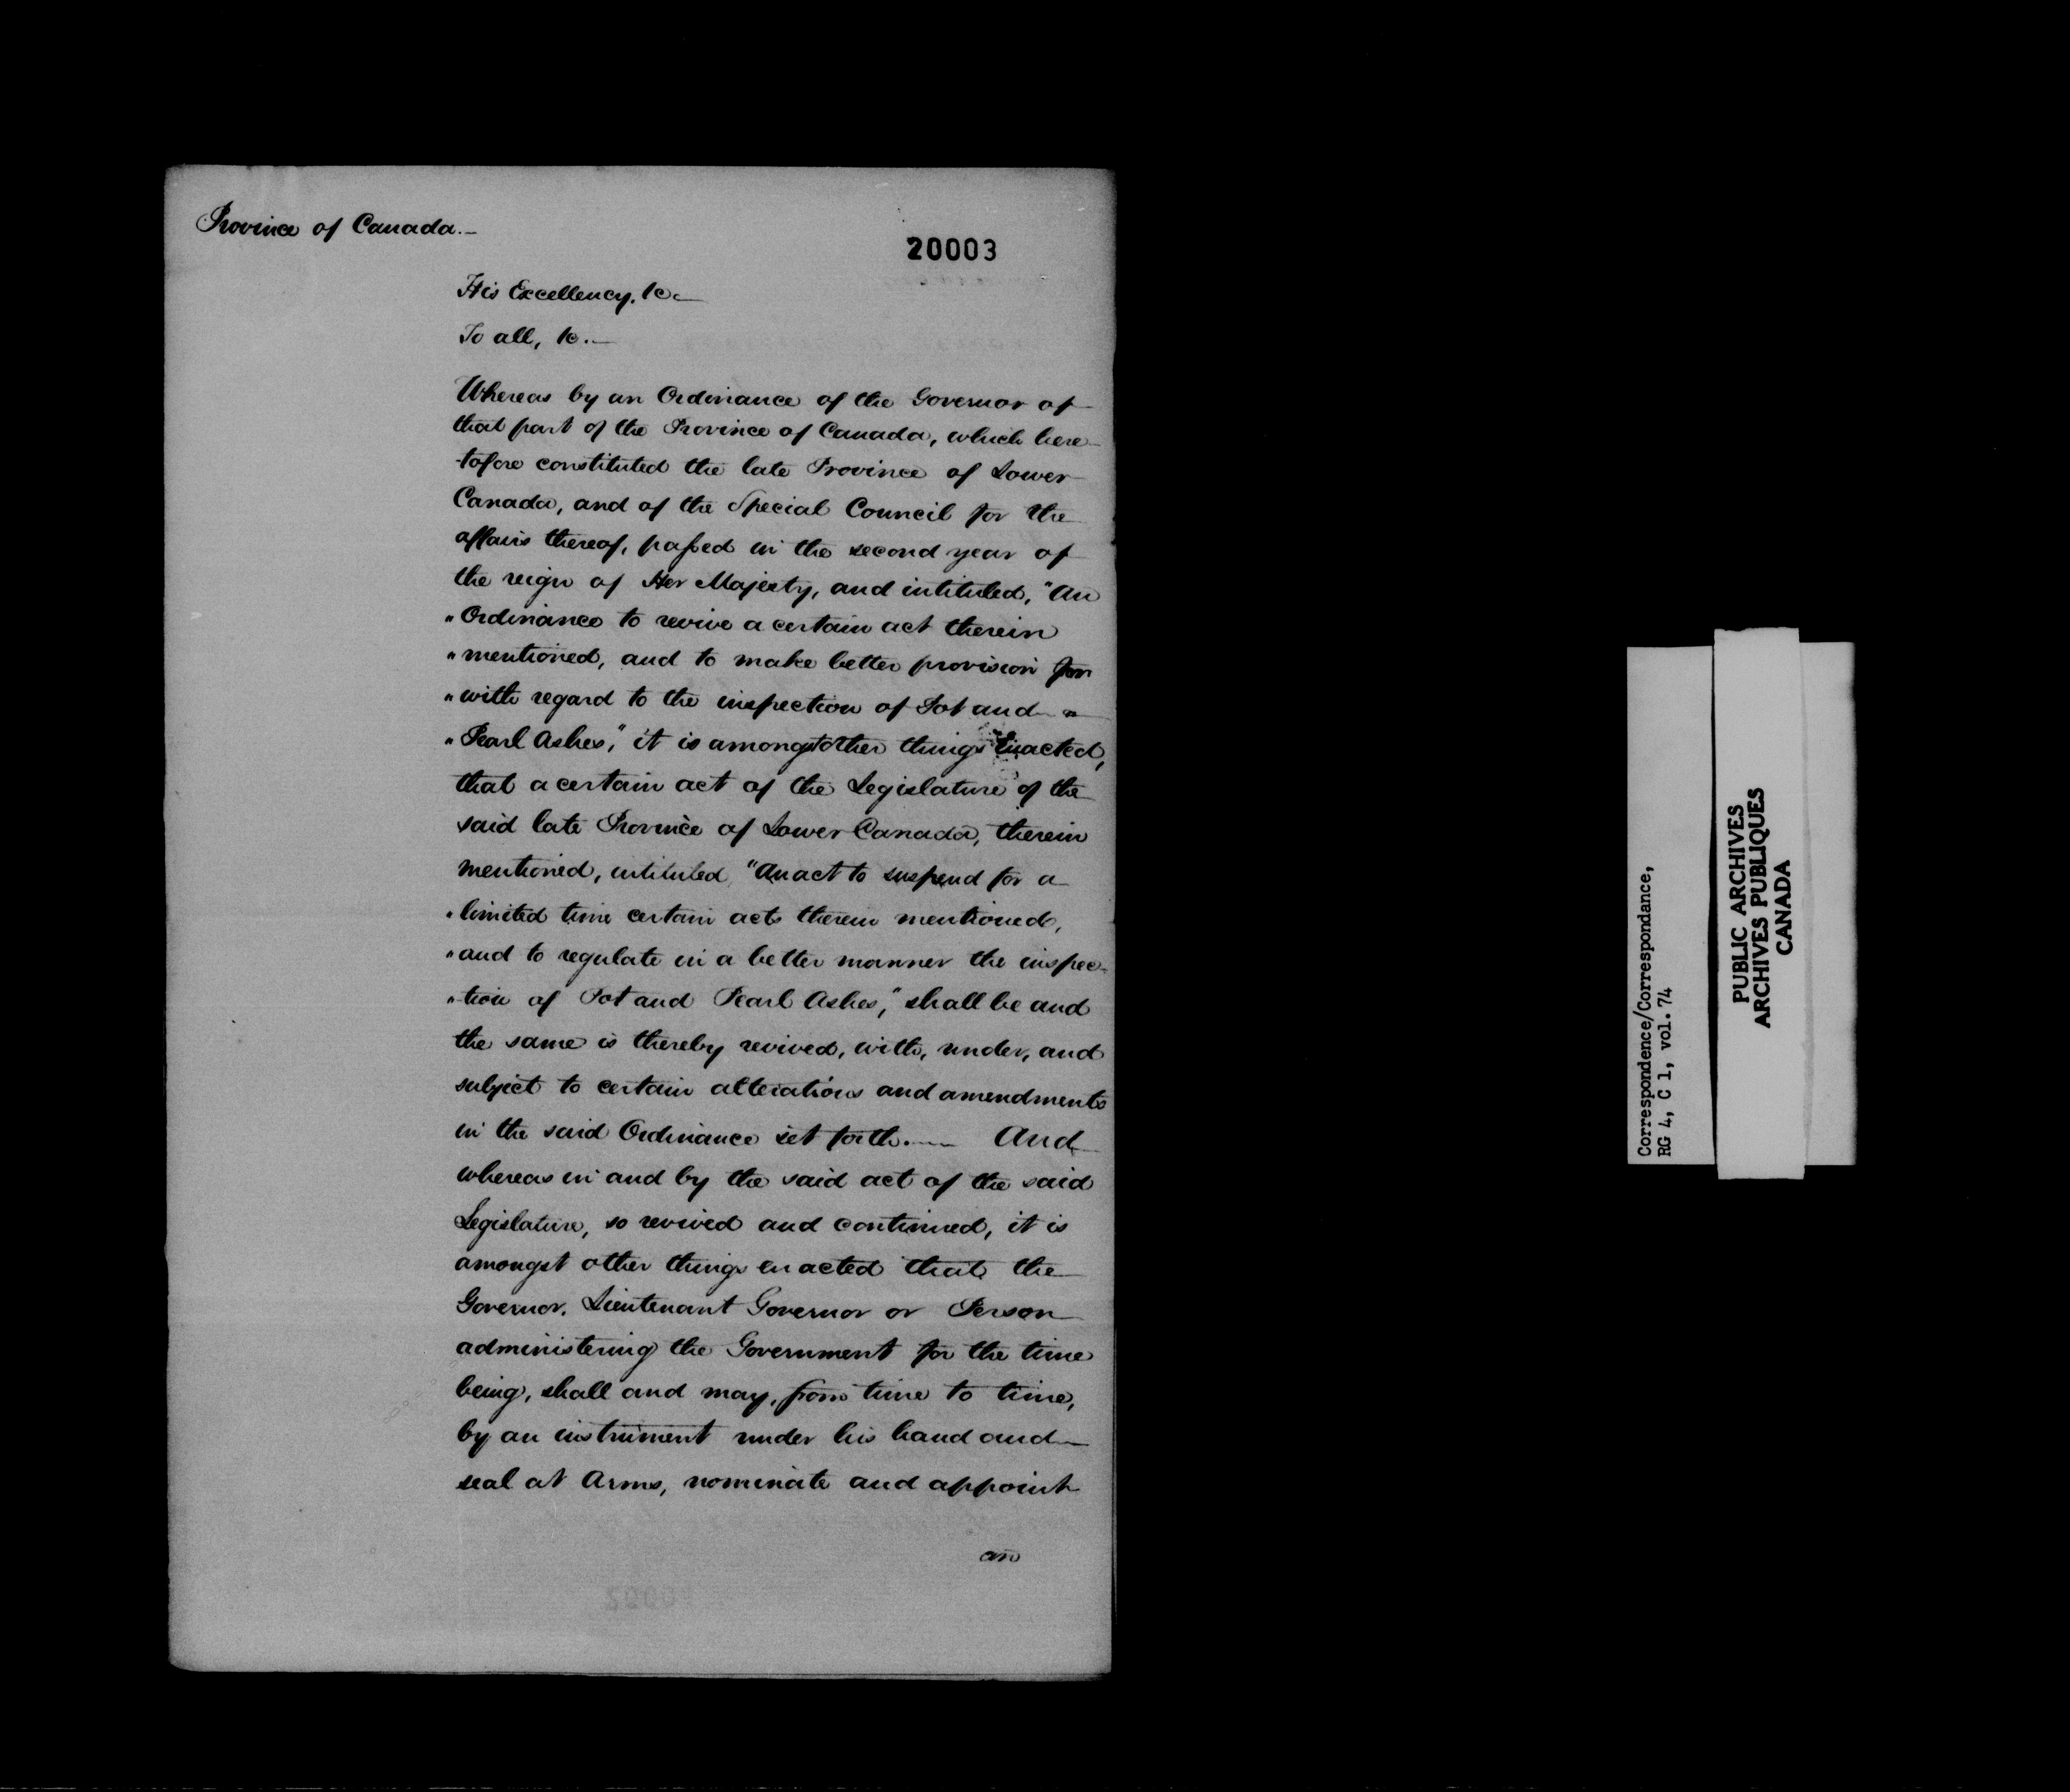 Province of Canada.—
20003
His Excellency, &c—
To all, &c.—
Whereas by an Ordinance of the Governor of
that part of the Province of Canada, which here-
-tofore constituted the late Province of Lower
Canada, and of the Special Council for the
affairs thereof, passed in the second year of
the reign of Her Majesty, and intituled, "An
"Ordinance to revive a certain act therein
"mentioned, and to make better provision
"with regard to the inspection of Pot and "
"Pearl Ashes," it is amongst other things Enacted,
that a certain act of the Legislature of the
said late Province of Lower Canada, therein
mentioned, intituled "An act to suspend for a
"limited time certain acts therein mentioned,
"and to regulate in a better manner the inspec-
"-tion of Pot and Pearl Ashes," shall be and
the same is thereby revived, with, under, and
subject to certain alterations and amendments
in the said Ordinance set forth.— And
whereas in and by the said act of the said
Legislature, so revived and continued, it is
amongst other things enacted that the
Governor, Lieutenant Governor or Person
administering the Government for the time
being, shall and may, from time to time,
by an instrument under his hand and
seal at Arms, nominate and appoint
an
Correspondence/Correspondance,
RG 4, C 1, vol. 74
PUBLIC ARCHIVES
ARCHIVES PUBLIQUES
CANADA